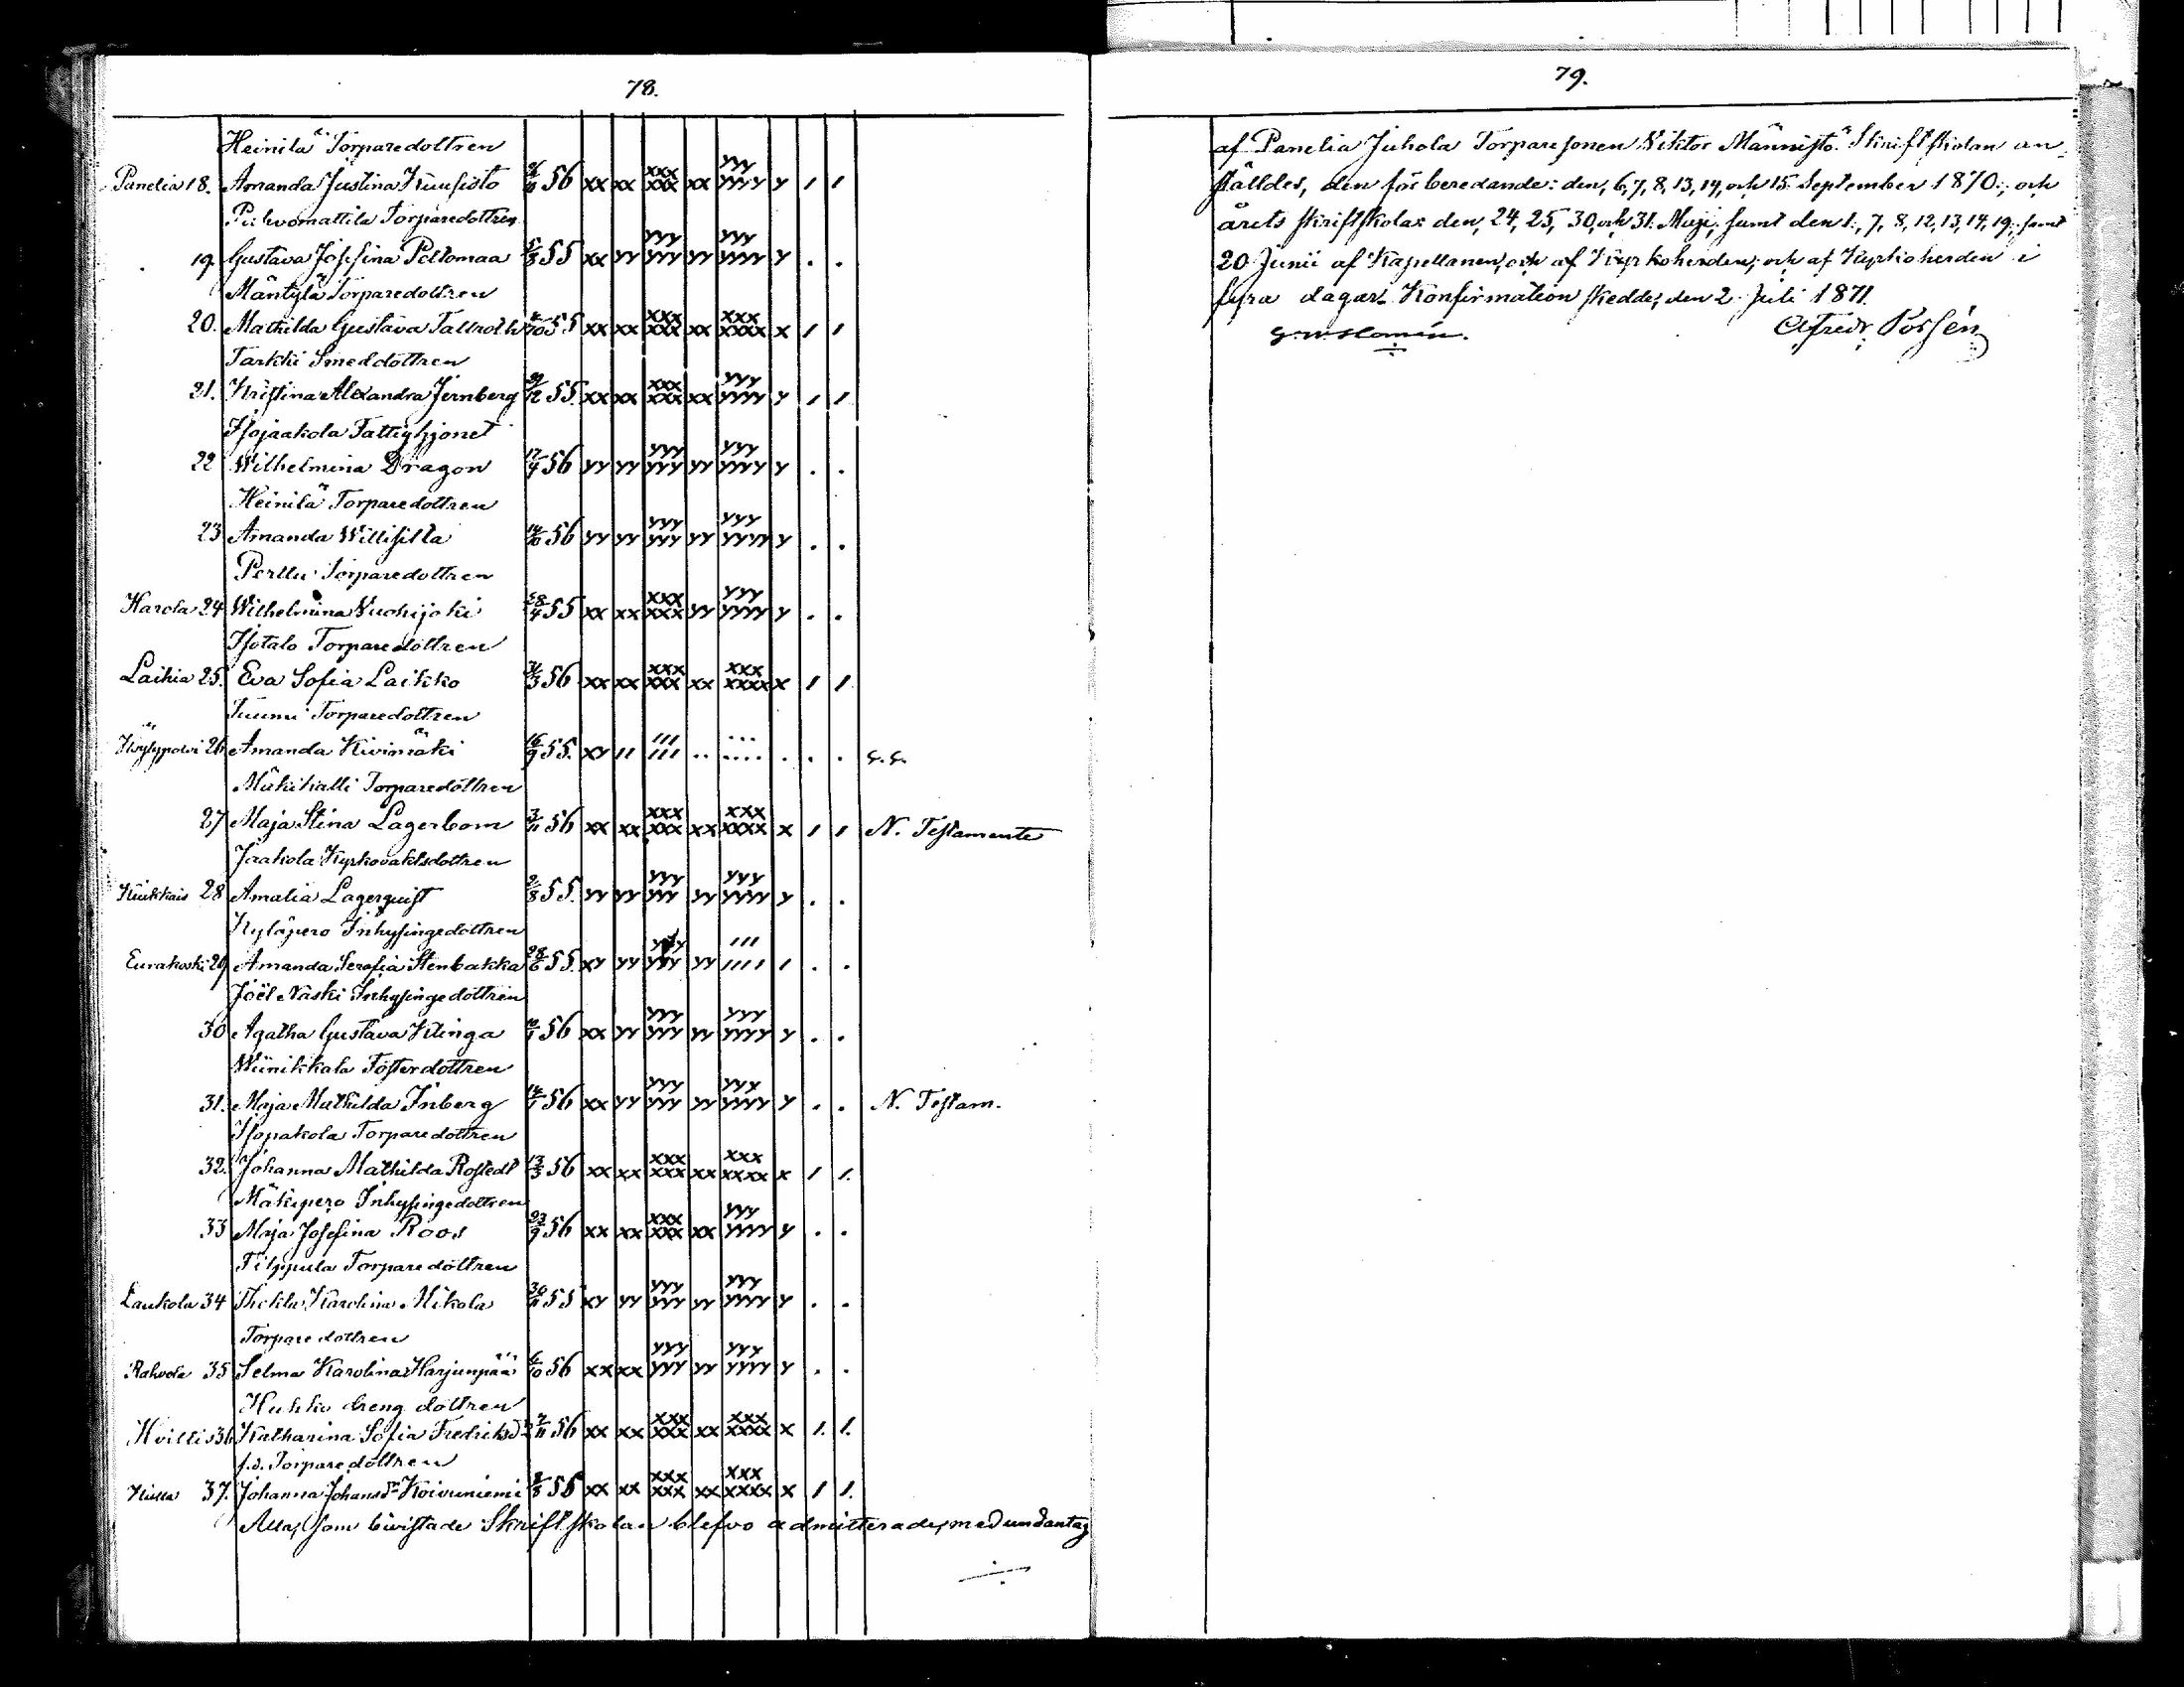 78.
Heinilä Torparedottren
Panelia 18. Amanda Justina Kuusisto 56 xx xx xxx xxx xx yyy yyyy y 1 1
Torparedottren
19. Gustava Josefina Peltomaa 55 xx yy yyy yyy yy yyy yyyy y . .
Mäntylä Torparedottren
20. Mathilda Gustava Tallroth 55 xx xx xxx xxx xx xxx xxxx x 1 1
Tarkki Smeddottren
21. Kristina Alexandra Jernberg 55. xx xx xxx xxx xx yyy yyyy y 1 1
Isojaakola Fattighjonet
22 Wilhelmina Dragon 17/4 56 yy yy yyy yyy yy yyy yyyy y . .
Heinilä Torparedottren
23 Amanda Willisilta 14/10 56 yy yy yyy yyy yy yyy yyyy y . .
Perttu Torparedottren
Harola 24 Wilhelmina Vuohijoki 55 xx xx xxx xxx yy yyy yyyy y . .
Isotalo Torparedottren
Laihia 25. Eva Sofia Laikko 56 xx xx xxx xxx xx xxx xxxx x 1 1
Tuumi Torparedottren
26 Amanda Kivimäki 16/9 55. xy 11 111 111 .. ... .... . . .
Mäkihalli Torparedottren
27 Maja Stina Lagerbom 3/11 56 xx xx xxx xxx xx xxx xxxx x 1 1 N. Testamente
Jaakola Kyrkovaktsdottren
Kiukkais 28 Amalia Lagerquist 55. yy yy yyy yyy yy yyy yyyy y . .
Kyläpero Inhysingedottren
Eurakoski 29 Amanda Serafia Stenbakka 55. xy yy yyy yyy yy 111 1111 1 . .
Joël Naski Inhysingedottren
30 Agatha Gustava Klinga 56 xx yy yyy yyy yy yyy yyyy y . .
Wiinikkala Fosterdottren
31. Maja Mathilda Inberg 56 xx yy yyy yyy yy yyx yyyy y . . N. Testam.
Torparedottren
32. Johanna Mathilda Rostedt 13/3 56 xx xx xxx xxx xx xxx xxxx x 1 1.
Mäkipero Inhysingedottren
33 Maja Josefina Roos 23/9 56 xx xx xxx xxx xx yyy yyyy y . .
Filppula Torparedottren
Laukola 34 Thekla Karolina Mikola 55 xy yy yyy yyy yy yyy yyyy y . .
Torparedottren
Rahvola 35 Selma Karolina Harjunpää 6/10 56 xx xx yyy yyy yy yyy yyyy y . .
Huhko dreng dottren
36 Katharina Sofia Fredriksdr 56 xx xx xxx xxx xx xxx xxxx x 1. 1.
f.d. Torparedottren
37. Johanna Johansdr Koivuniemi xx xx xxx xxx xx xxx xxxx x 1 1.
Alla, som bivistade Skriftskolan blefvo admitterade, med undantag
79.
af Panelia Juhola Torparesonen Viktor Männistö. Skriftskolan an-
ställdes, den förberedande: den, 6, 7, 8, 13, 14, och 15 September 1870; och
årets skriftskola: den, 24, 25, 30, och 31. Maji, samt den 1., 7, 8, 12, 13, 14, 19., samt
20 Junii af Kapellanen, och af Kyrkoherden; och af Kyrkoherden i
fyra dagar. Konfirmation skedde, den 2. Juli 1871.
Alfredr Porsén